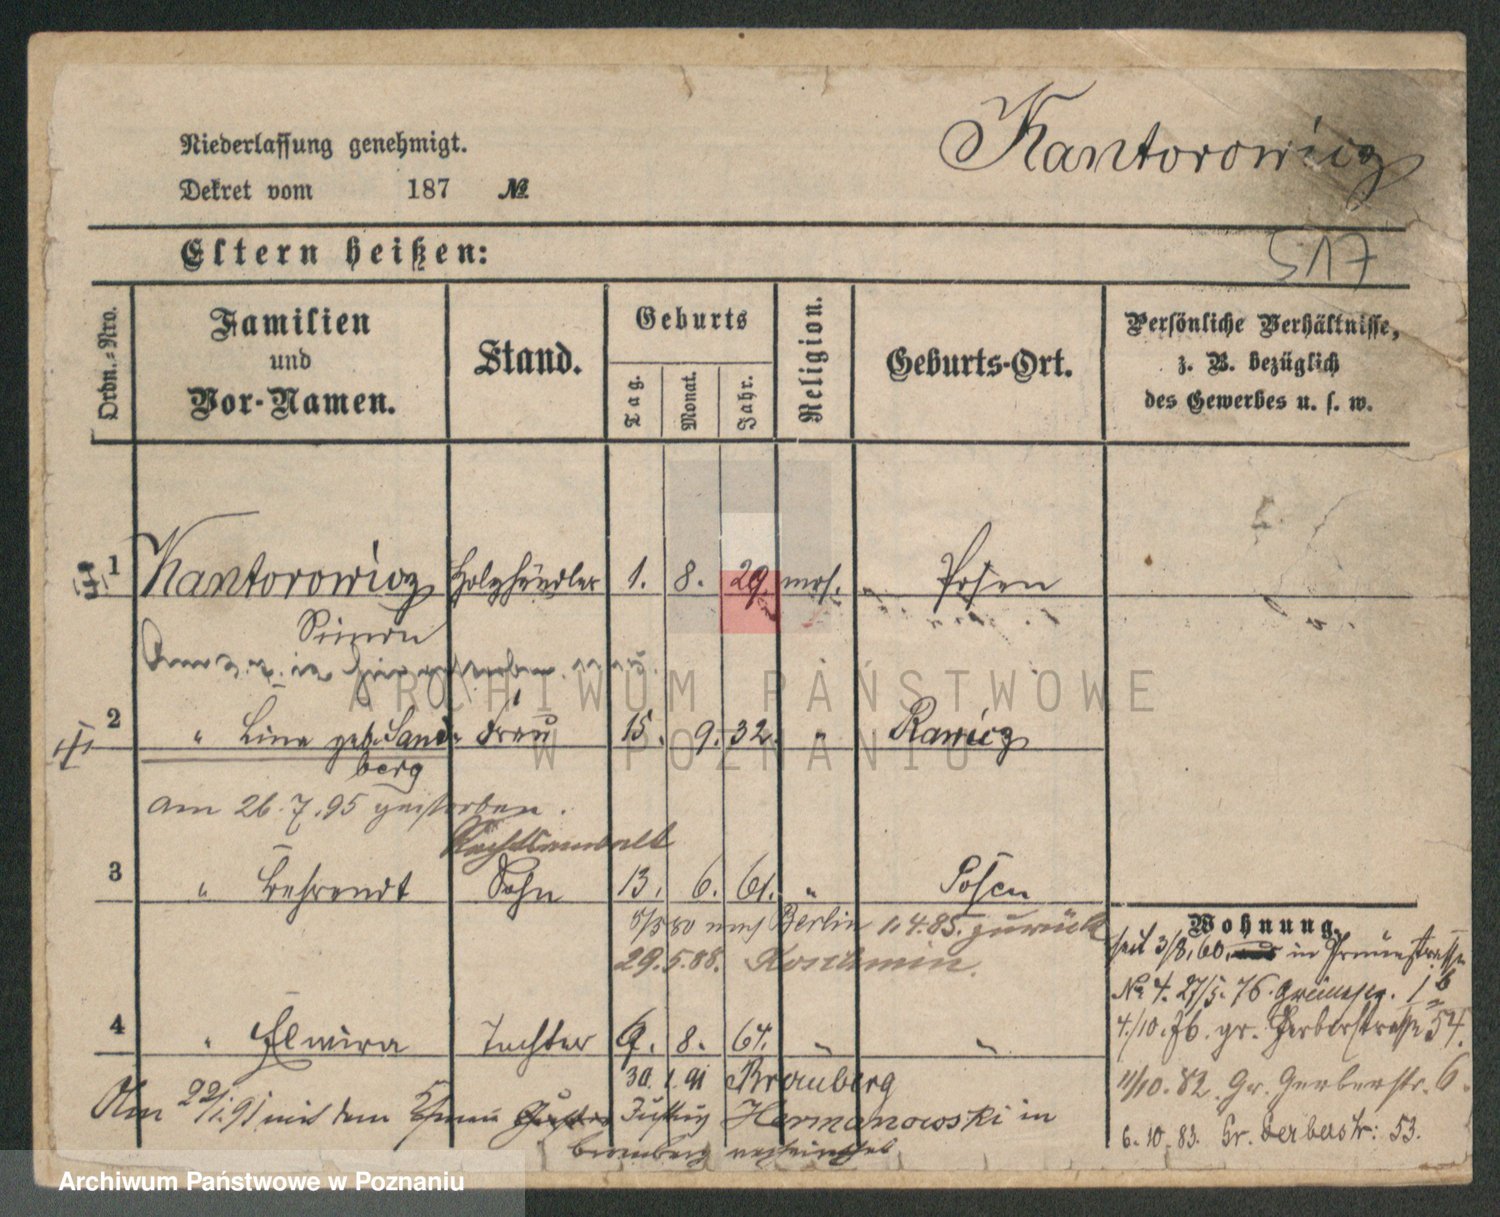 Kantorowicz
Niederlassung genehmigt.
Dekret vom 187 №
517
Eltern heißen:
Ordn.-Nro. Familien und Vor-Namen. Stand. Geburts Tag. Monat. Jahr. Religion. Geburts-Ort. Persönliche Verhältnisse, z. B. bezüglich des Gewerbes u. s. w.
1 Kantorowicz Holzhändler 1. 8. 29. mos. Posen
Simon
2 " Line geb. Sand- Frau 15. 9. 32. " Rawicz
berg
am 26.7.95 gestorben.
Rechtsanwalt
3 " Behrendt Sohn 13. 6. 61. " Posen
5/5 80 nach Berlin 1.4.85. zurück
29.5.88. Koschmin.
4 " Elwira Tochter 9. 8. 64. " "
30.1.91 Bromberg
Am 22/1.91 mit dem Justus Hermanowski in
Bromberg
Wohnung.
seit 3/8.60. in
№ 4. 27/5. 76. 1b
4./10.76. gr. Gerberstrasse 54.
11/10.82. Gr. Gerberstr. 6.
6.10.83. Gr. Gerberstr: 53.
ARCHIWUM PAŃSTWOWE
W POZNANIU
Archiwum Państwowe w Poznaniu